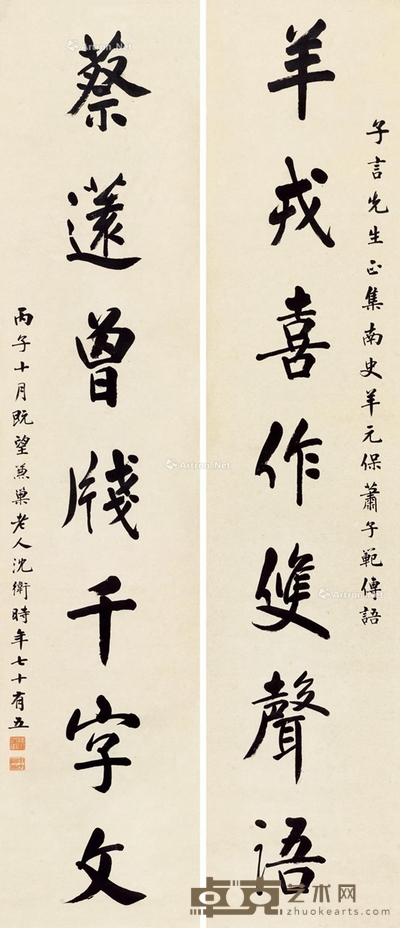 子言先生正集南史羊元保蕭子範傳語
羊戎喜作雙聲語
蔡薳曾牋千字文
丙子十月既望兼巢老人沈衛時年七十有五
卓克艺术网
www.zhuokearts.com